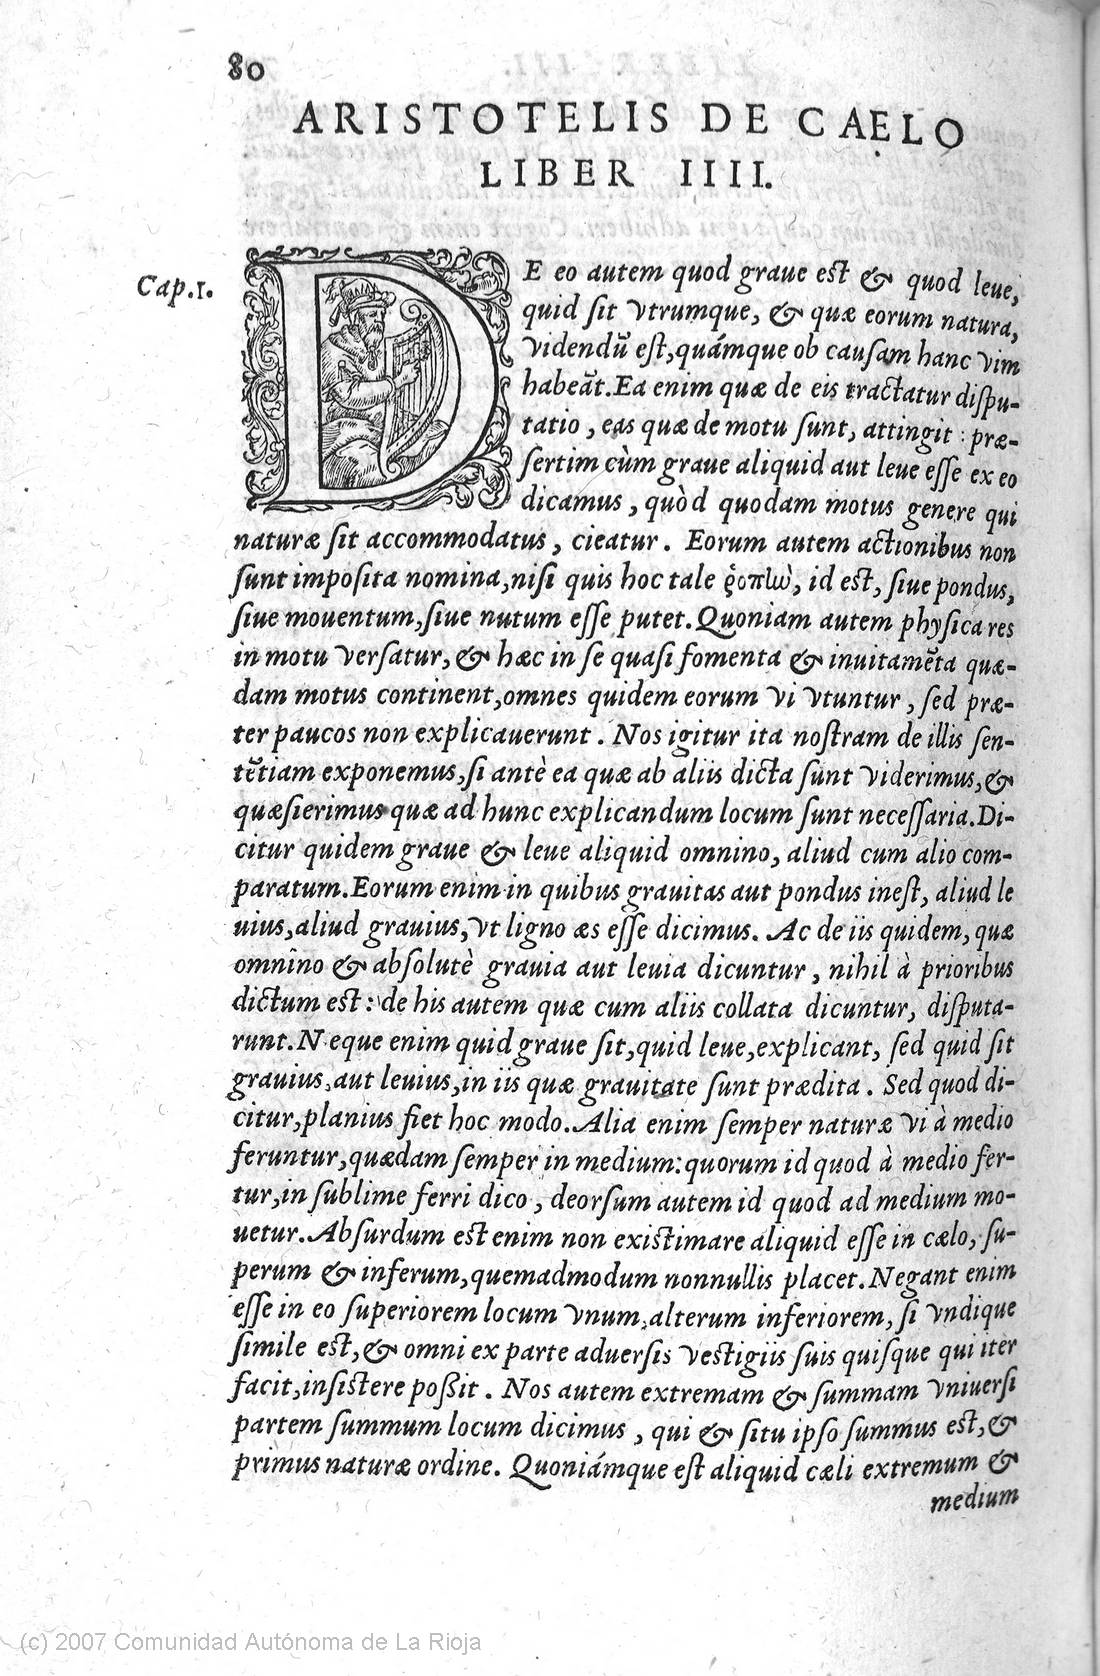 80
ARISTOTELIS DE CAELO
LIBER IIII.
Cap.1.
DE eo autem quod graue est & quod leue,
quid sit vtrumque, & quæ eorum natura,
videndũ est, quámque ob causam hanc vim
habeãt. Ea enim quæ de eis tractatur dispu-
tatio, eas quæ de motu sunt, attingit: præ-
sertim cùm graue aliquid aut leue esse ex eo
dicamus, quòd quodam motus genere qui
naturæ sit accommodatus, cieatur. Eorum autem actionibus non
sunt imposita nomina, nisi quis hoc tale ῥοπὼ, id est, siue pondus,
siue mouentum, siue nutum esse putet. Quoniam autem physica res
in motu versatur, & hæc in se quasi fomenta & inuitamẽta quæ-
dam motus continent, omnes quidem eorum vi vtuntur, sed præ-
ter paucos non explicauerunt. Nos igitur ita nostram de illis sen-
tẽtiam exponemus, si antè ea quæ ab aliis dicta sunt viderimus, &
quæsierimus quæ ad hunc explicandum locum sunt necessaria. Di-
citur quidem graue & leue aliquid omnino, aliud cum alio com-
paratum. Eorum enim in quibus grauitas aut pondus inest, aliud le
uius, aliud grauius, vt ligno æs esse dicimus. Ac de iis quidem, quæ
omnîno & absolutè grauia aut leuia dicuntur, nihil à prioribus
dictum est: de his autem quæ cum aliis collata dicuntur, disputa-
runt. Neque enim quid graue sit, quid leue, explicant, sed quid sit
grauius, aut leuius, in iis quæ grauitate sunt prædita. Sed quod di-
citur, planius fiet hoc modo. Alia enim semper naturæ vi à medio
feruntur, quædam semper in medium: quorum id quod à medio fer-
tur, in sublime ferri dico, deorsum autem id quod ad medium mo-
uetur. Absurdum est enim non existimare aliquid esse in cælo, su-
perum & inferum, quemadmodum nonnullis placet. Negant enim
esse in eo superiorem locum vnum, alterum inferiorem, si vndique
simile est, & omni ex parte aduersis vestigiis suis quisque qui iter
facit, insistere poßit. Nos autem extremam & summam vniuersi
partem summum locum dicimus, qui & situ ipso summus est, &
primus naturæ ordine. Quoniámque est aliquid cæli extremum &
medium
(c) 2007 Comunidad Autónoma de La Rioja